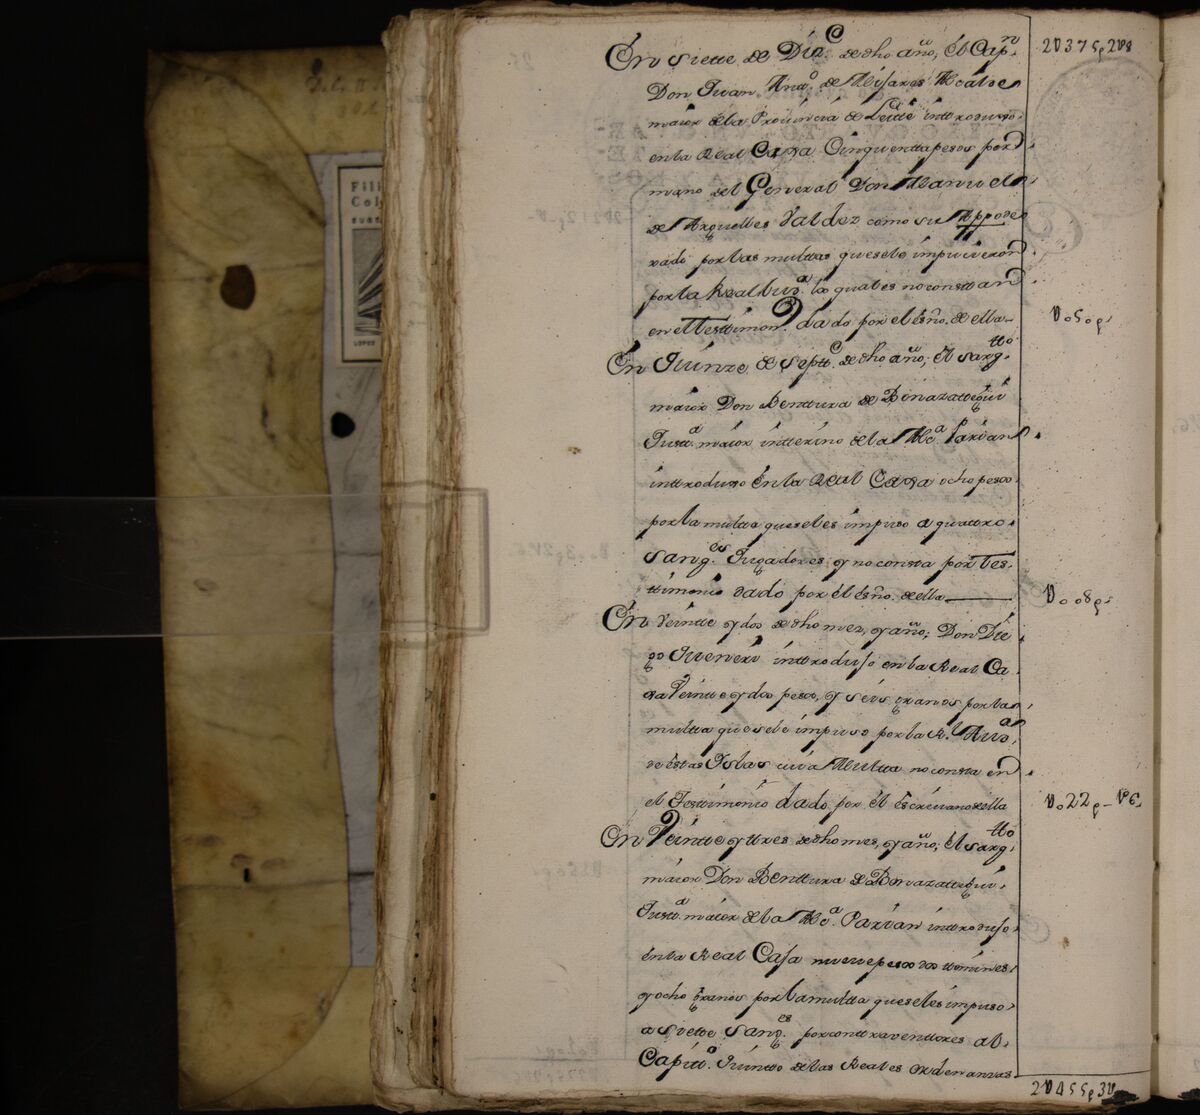 2U375p2U8
En siette de Diz.e de dho año, el Cap.n
Don Juan Antt.o de Misares Alcalde
maior de la Provincia de Leitte inttroduxo
en la Real Caxa Cinquenttapesos por
mano del General Don Manuel
de Arguelles Valdez como su Appode
rado por las multtas que se le impucieron
por la Real Aud.a las quales no constan
en el Testtimon.o dado por el esño. de ella
U050p.
En Quinze de Septt.e de dho año; el sarg.tto
maior Don Benttura de Benazattegui
Justt.a maior intterino de la Alc.a Parian
inttroduxo en la Real Caxa ocho pesos
por la multta que se les impuso a quattro
Sang.es Jugadores y no consta por tes-
ttimonio dado por el esño. de ella
U008p.
En Veintte y dos de dho mes, y año; Don Die
go Jueneri inttroduso en la Real Ca
xa Veintte y dos pesos, y seis granos por la
multta que se le impuso por la R.l Aud.a
de estas Islas cuia Multta no consta en
el Testtimonio dado por el escrivano de ella
U022p-U6.
En Veintte y ttres de dho mes, y año; el sarg.tto
maior Don Benttura de Benazattegui
Justt.a maior de la Alc.a Parian inttroduso
en la Real Casa nueve pesos dos ttomines
y ocho granos por la multta que se les impuso
a siette Sang.es por conttraventtores al
Capitt.o Quintto de las Reales ordenanzas
2U455p3U